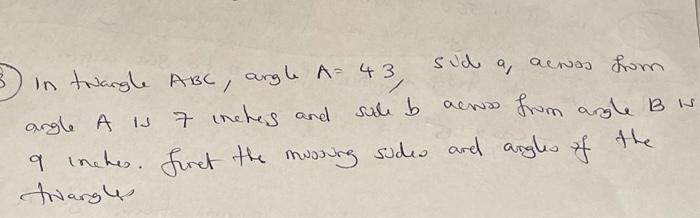 3) In triangle ABC, angle A = 43, side a, across from
angle A is 7 inches and side b across from angle B is
9 inches. find the missing sides and angles of the
triangle